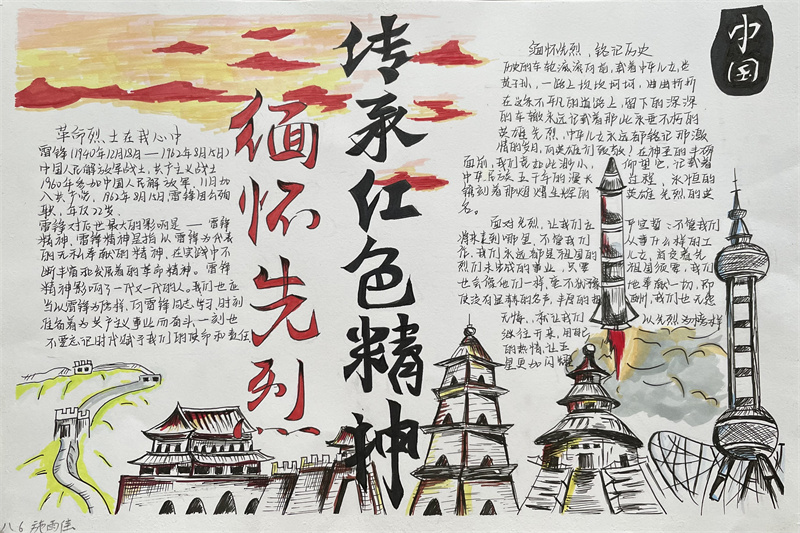 中国
传承红色精神
缅怀先烈
革命烈士在我心中
雷锋(1940年12月18日—1962年8月15日)
中国人民解放军战士,共产主义战士
1960年参加中国人民解放军,11月加
入共产党。1962年8月15日,雷锋因公殉
职,年仅22岁.
雷锋对后世最大的影响是——雷锋
精神,雷锋精神是指以雷锋为代表
的无私奉献的精神,在实践中不
断丰富和发展着的革命精神。雷锋
精神影响了一代又一代的人,我们也应
当以雷锋为榜样,向雷锋同志学习,时刻
准备着为共产主义事业而奋斗,一刻也
不要忘记时代赋予我们的使命和责任
缅怀先烈,铭记历史
历史的车轮滚滚向前,载着中华儿女
英子孙,一路上坎坎坷坷,曲曲折折
在这条不平凡的道路上,留下的深深
的车辙永远记载着那些永垂不朽的
英雄先烈,中华儿女永远都铭记那激
情的岁月,向英雄们致敬!在神圣的丰碑
面前,我们是如此渺小,仰望它,记载着
中华民族五千年的漫长过程,永恒的
镌刻着那熠熠生辉的英雄先烈的英
名。
面对先烈,让我们庄严宣誓:不管我们
将来走到哪里,不管我们从事什么样的工
作,我们永远都是祖国的儿女,肩负着先
烈们未完成的事业,只要祖国需要,我们
也会像他们一样,毫不犹豫地奉献一切,即
使没有显赫的名声,丰厚的报酬,我们也无怨
无悔,就让我们以先烈为榜样
继往开来,用自己
的热情,让五
星更加闪耀
八.6